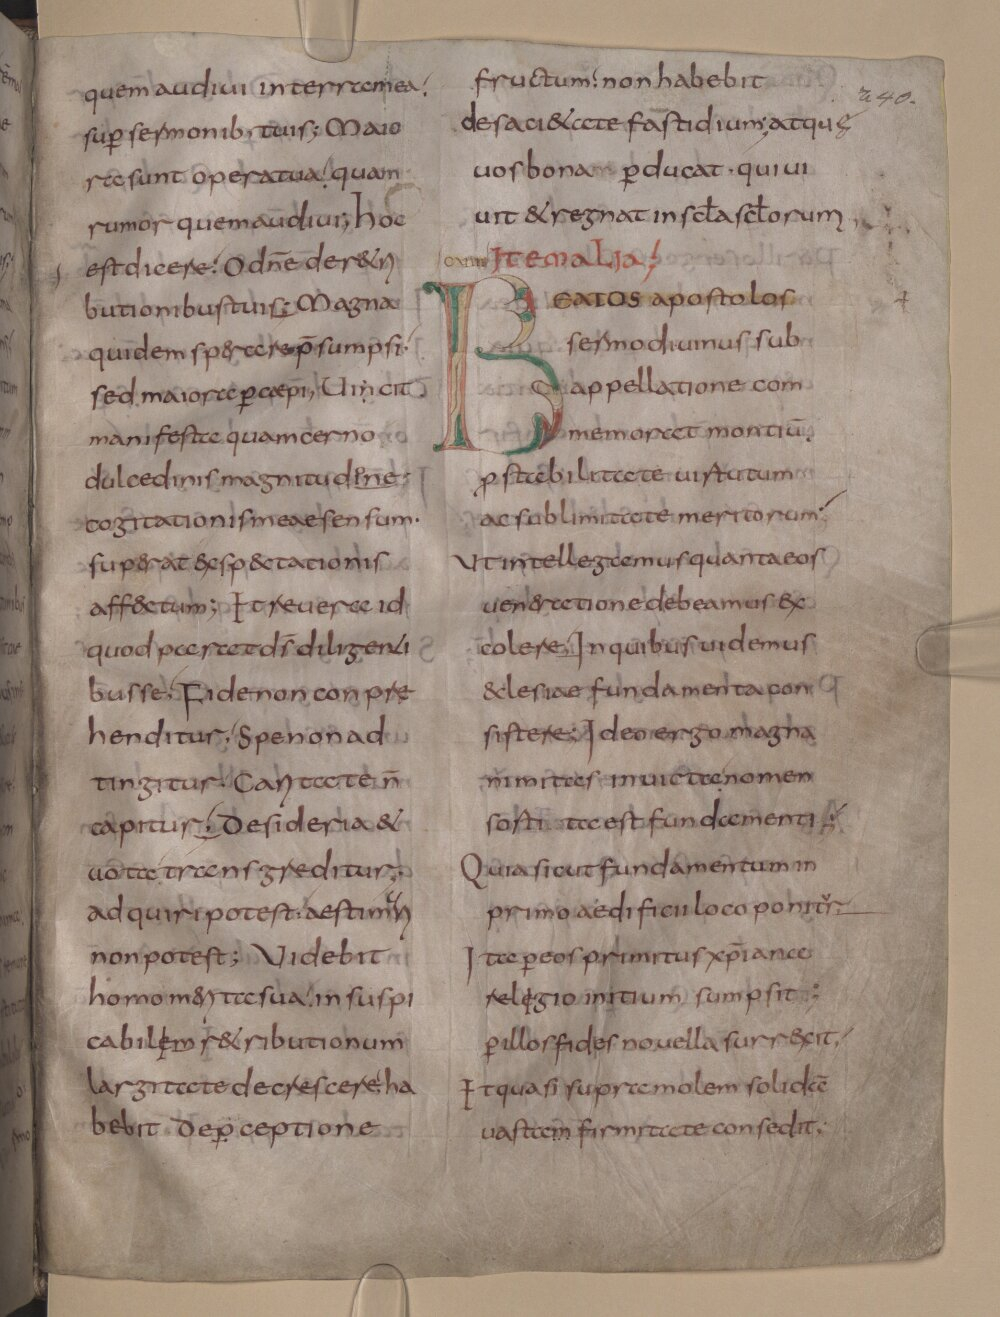 quem audiui in terra mea.
sup̄ sermonib; tuis; Maio
ra sunt opera tua! quam
rumor quem audiui; hoc
est dicere! O dn̄e de retri
butionibus tuis; Magna
quidem sperare p̄sumpsi.
sed maiora p̄cæpi; Uincit
manifeste quam cerno
dulcedinis magnitudine:
cogitationis meae sensum.
superat & expectationis
affectum; It reuera id
quod parat ds̄ diligenti
busse. Fide non conpre
henditur, Spe non ad
tingitur. Caritate n̄
capitur; Desideria &
uota transgreditur;
adquiri potest. aestimari
non potest; Videbit
homo merita sua! in suspi
cabilem retributionum
largitate decrescere! ha
bebit. De p̄ceptione
fructum! non habebit
de saci&ate fastidium; atque
uos bona p̄ducat. qui ui
uit & regnat in scl̄a scl̄orum
240.
Item alia
Beatos apostolos
sermo diuinus sub
appellatione com
memorat montiū!
p stabilitate uirtutum
ac sublimitate meritorum!
Vt intellegamus quanta eos
ueneratione debeamus ex
colere; In quibus uidemus
eclesiae fundamenta con
sistere; Ideo ergo magna
nimitas inuicta nomen
sorti ta est fundamenti;
Quia sicut fundamentum in
primo aedificii loco ponitur
Ita p̄ eos primitus xp̄iana
religio initium sumpsit;
p̄ illos fides nouella surrexit,
It quasi supra molem solidae
uastam firmitate consedit;